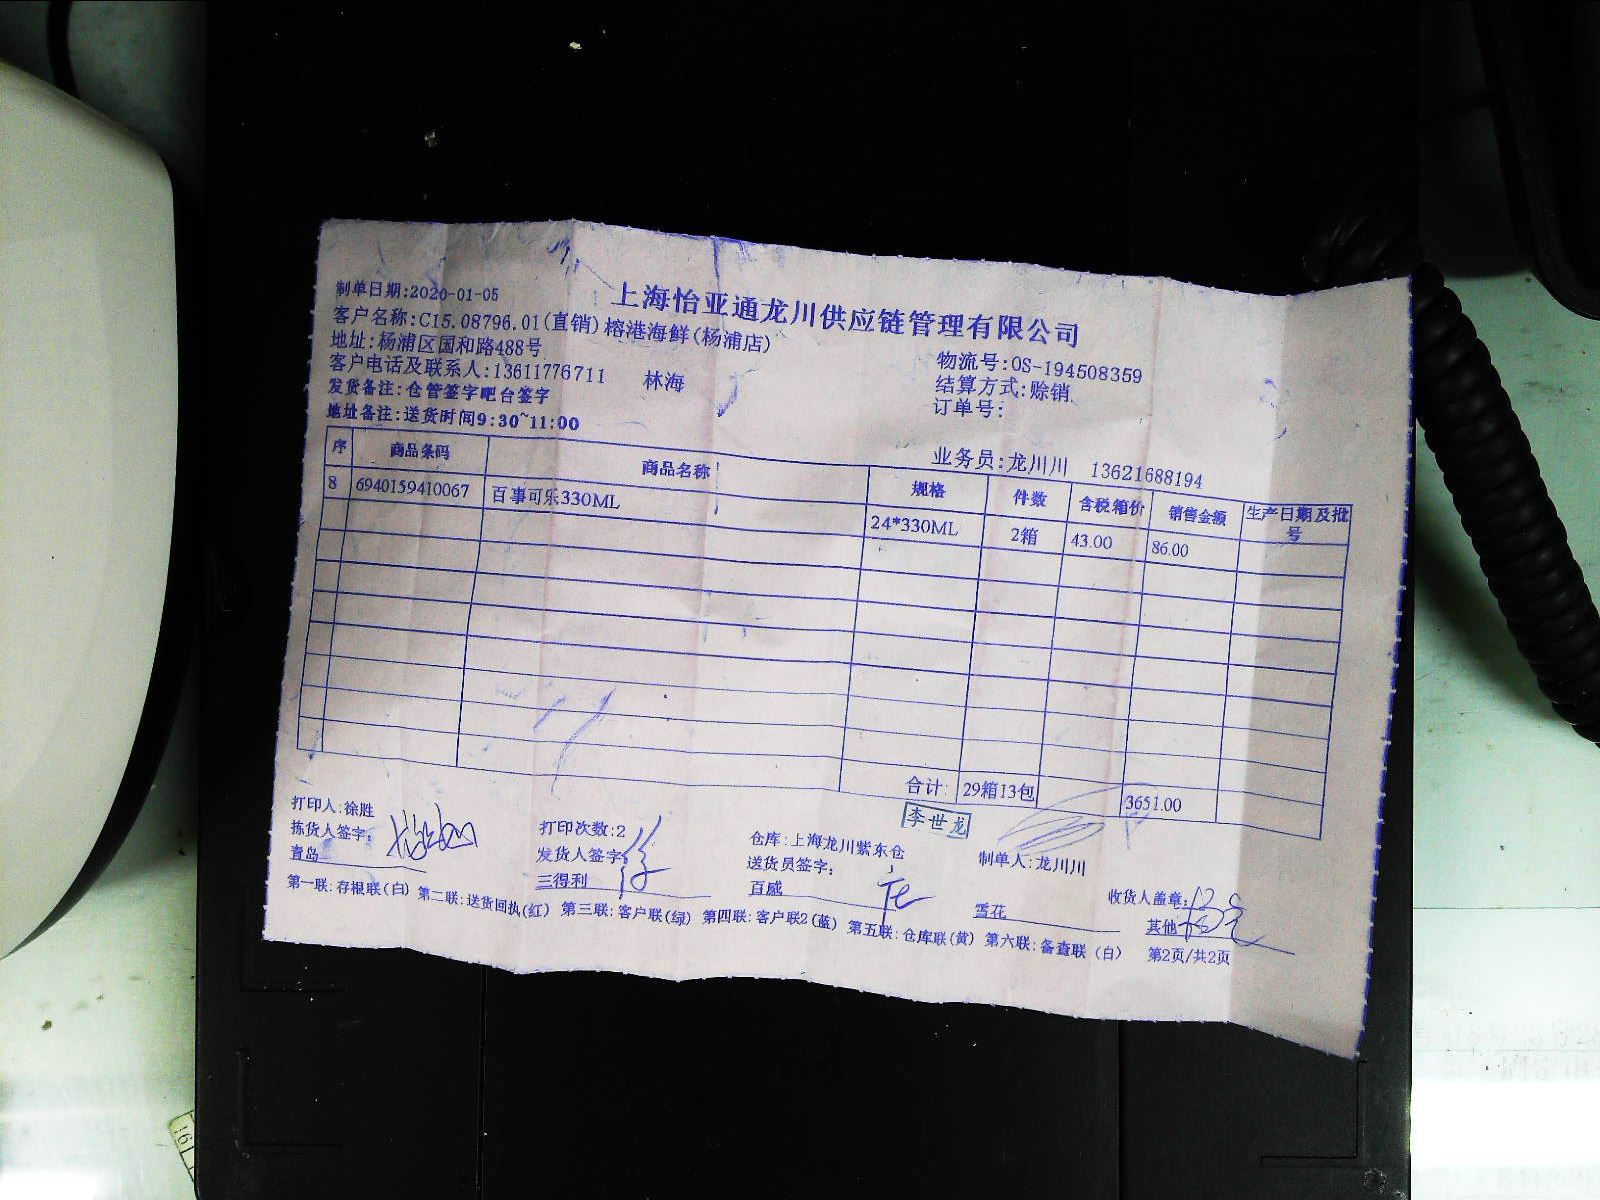 上海怡亚通龙川供应链管理有限公司
制单日期:2020-01-05
客户名称:C15.08796.01(直销)榕港海鲜(杨浦店)
地址:杨浦区国和路488号
物流号:OS-194508359
客户电话及联系人:13611776711 林海
结算方式:赊销
发货备注:仓管签字吧台签字
订单号:
地址备注:送货时间9:30~11:00
业务员:龙川川 13621688194
序 商品条码 商品名称 规格 件数 含税箱价 销售金额 生产日期及批号
8 6940159410067 百事可乐330ML 24*330ML 2箱 43.00 86.00
合计: 29箱13包 3651.00
李世龙
打印人:徐胜 打印次数:2 仓库:上海龙川紫东仓 制单人:龙川川
拣货人签字: 发货人签字: 送货员签字: 收货人盖章:
青岛 三得利 百威 雪花 其他
第一联:存根联(白) 第二联:送货回执(红) 第三联:客户联(绿) 第四联:客户联2(蓝) 第五联:仓库联(黄) 第六联:备查联(白) 第2页/共2页